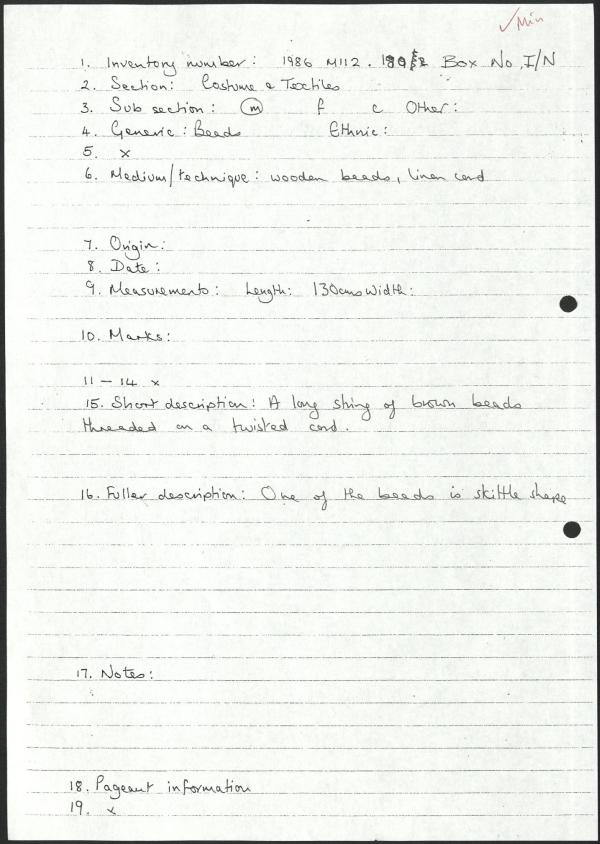 ✓ Min
1. Inventory number: 1986 M112. Box No I/N
2. Section: Costume & Textiles
3. Sub section: m f c Other:
4. Generic: Beads Ethnic:
5. x
6. Medium/technique: wooden beads, linen cord
7. Origin:
8. Date:
9. Measurements: Length: 130cms Width:
10. Marks:
11 - 14 x
15. Short description: A long string of brown beads
threaded on a twisted cord.
16. Fuller description: One of the beads is skittle shape
17. Notes:
18. Pageant information
19. x